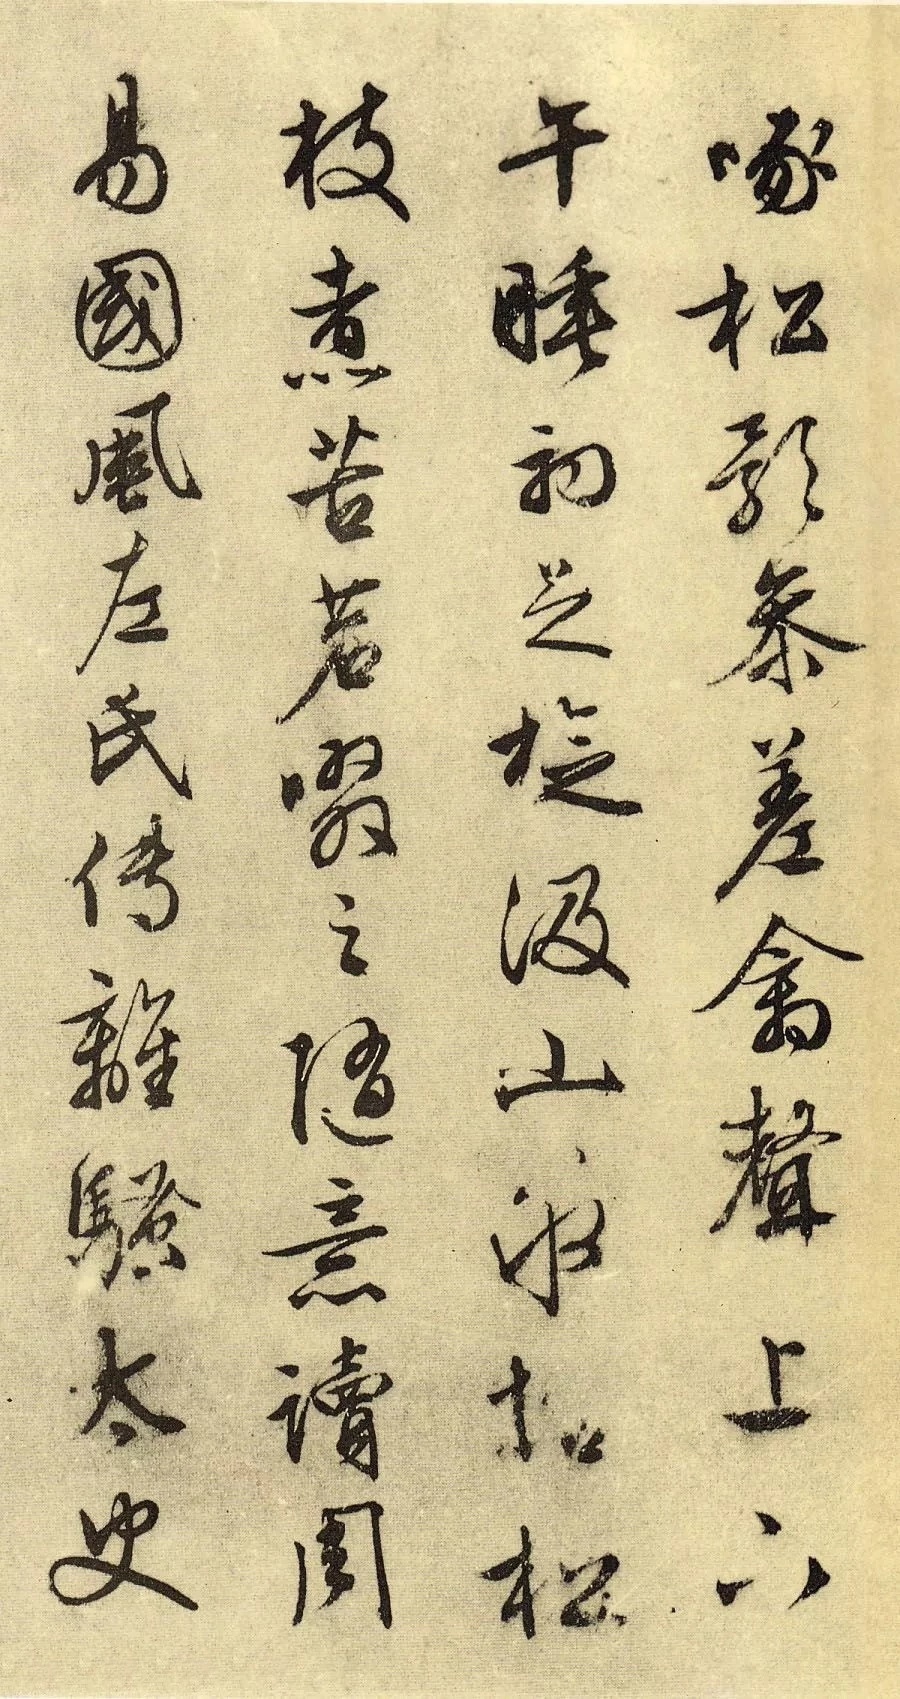 啄松影參差禽聲上下
午睡初足旋汲山泉拾松
枝煮苦茗啜之隨意讀周
易國風左氏傳離騷太史